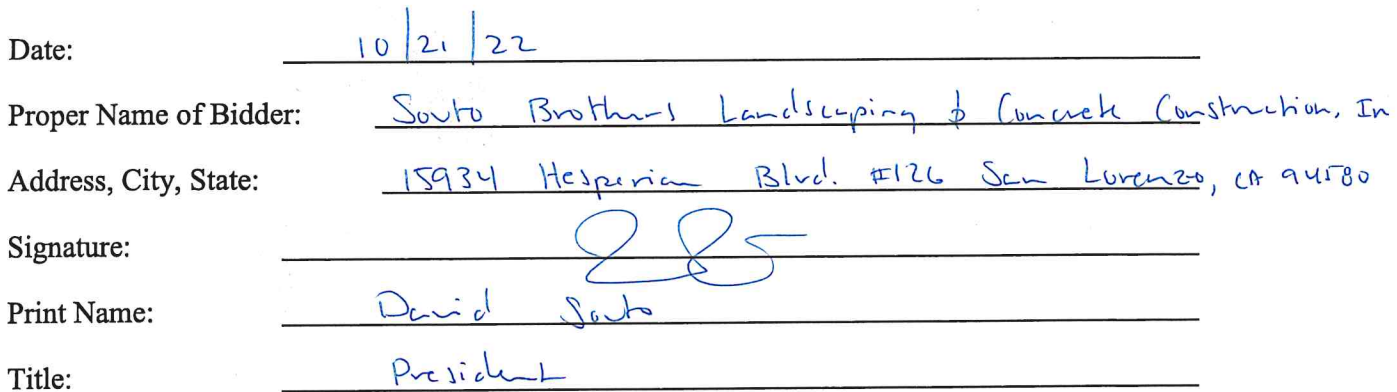 Date: 10/21/22
Proper Name of Bidder: Souto Brothers Landscaping & Concrete Construction, In
Address, City, State: 15934 Hesperian Blvd. #126 San Lorenzo, CA 94580
Signature:
Print Name: David Souto
Title: President